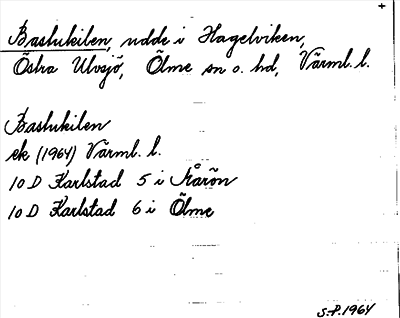 Bastukilen, udde i Hagelviken,
Östra Ulvsjö, Ölme sn o. hd, Värml. l.
Bastukilen
ek (1964) Värml. l.
10 D Karlstad 5 i Kårön
10 D Karlstad 6 i Ölme
S.P. 1964